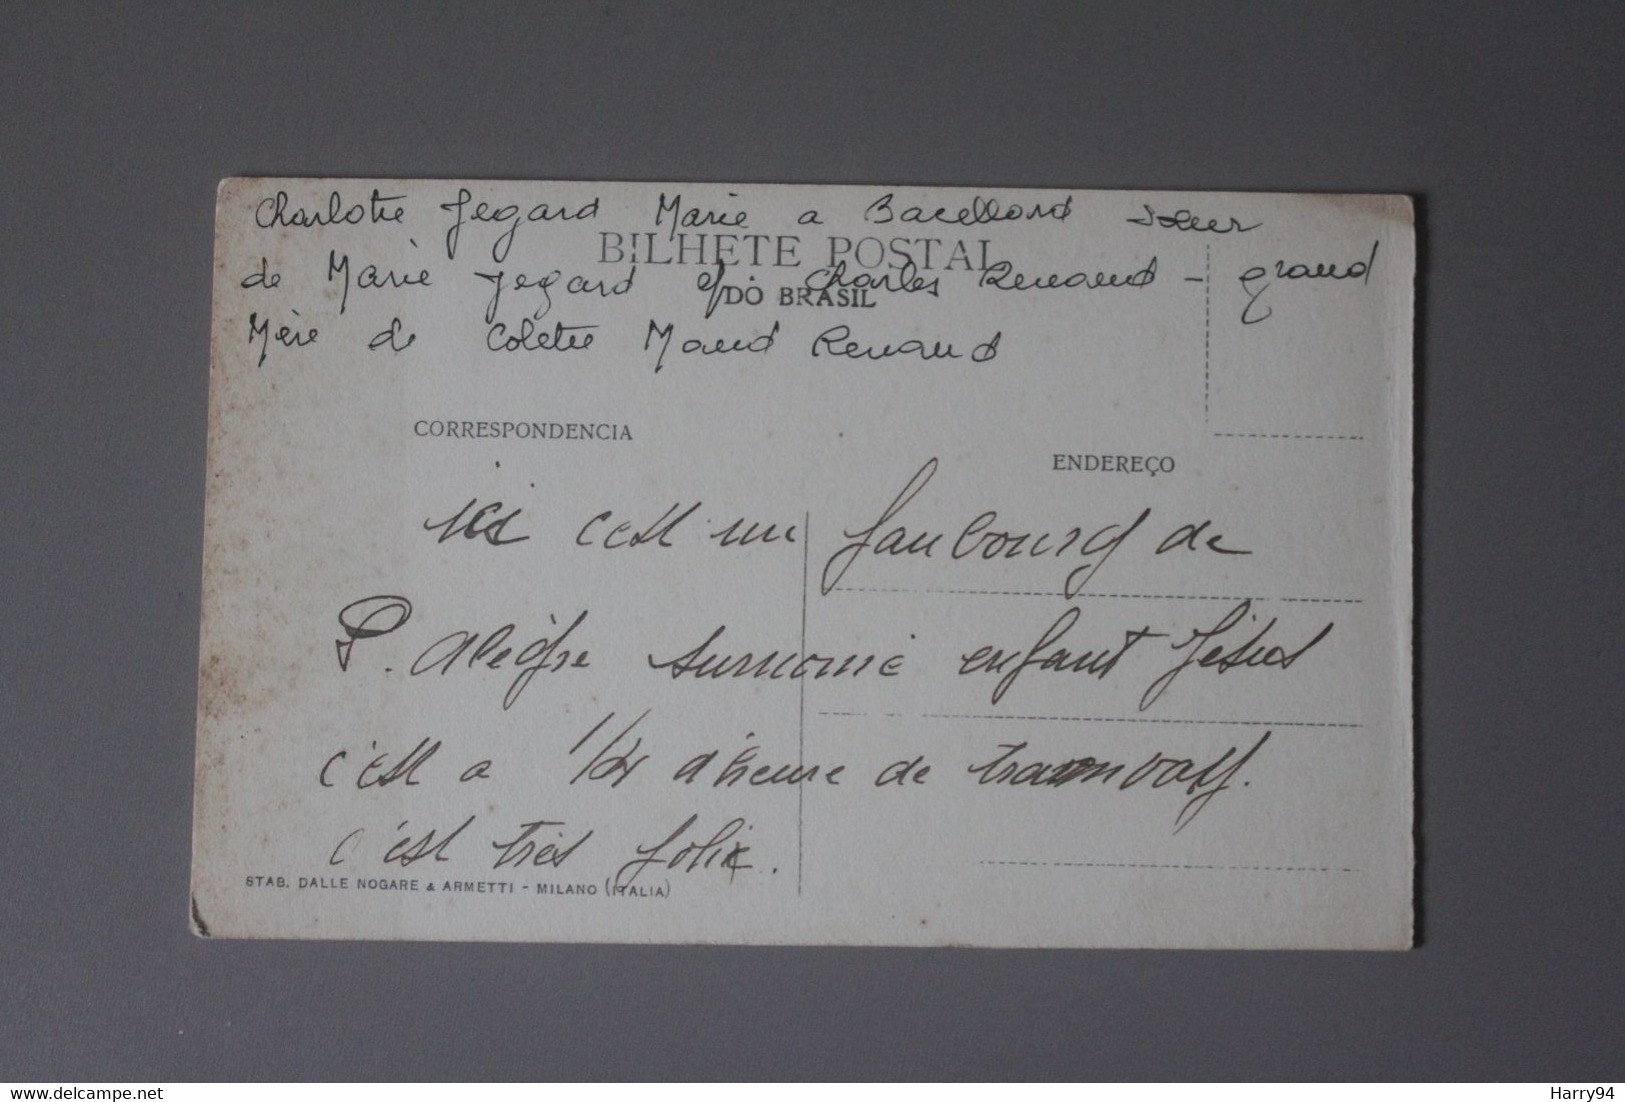 Charlotte Jegard Marie a Bacelland soeur
BILHETE POSTAL
de Marie Jegard Charles Renaud - grand
DO BRASIL
Mère de Colette Maud Renaud
CORRESPONDENCIA
ENDEREÇO
ici c'est un faubourg de
P. Alègre surnomé enfant Jésus
c'est a 1/2 d'heure de tramway.
c'est très jolie.
STAB. DALLE NOGARE & ARMETTI - MILANO (ITALIA)
delcampe.net
Harry94